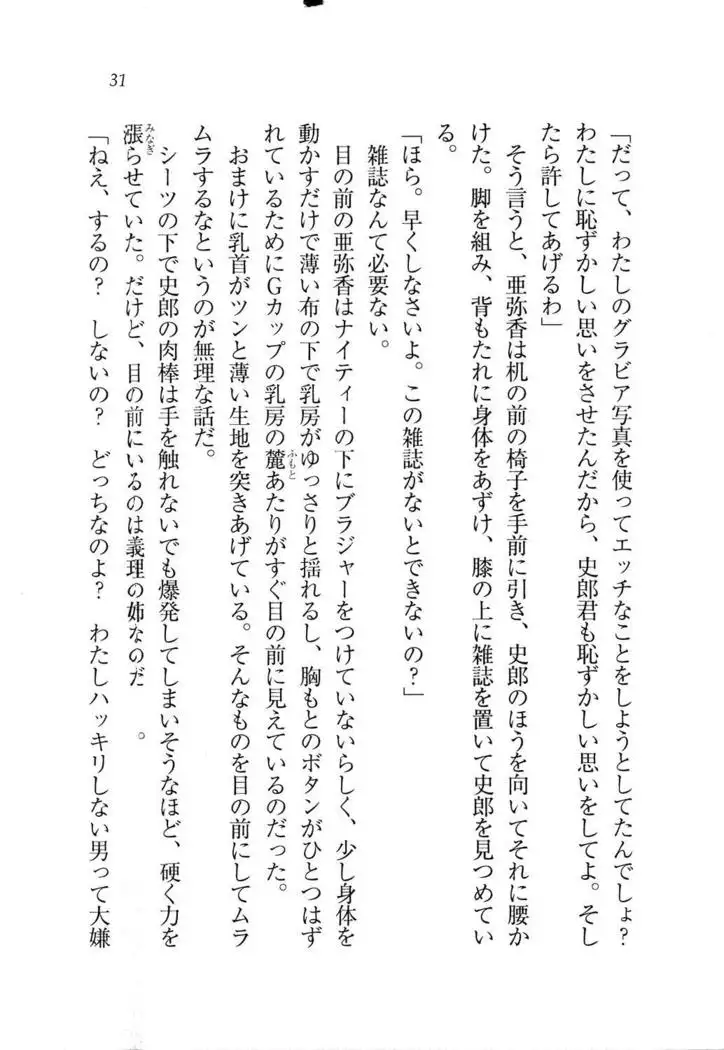 31
「だって、わたしのグラビア写真を使ってエッチなことをしようとしてたんでしょ?
わたしに恥ずかしい思いをさせたんだから、史郎君も恥ずかしい思いをしてよ。そし
たら許してあげるわ」
そう言うと、亜弥香は机の前の椅子を手前に引き、史郎のほうを向いてそれに腰か
けた。脚を組み、背もたれに身体をあずけ、膝の上に雑誌を置いて史郎を見つめてい
る。
「ほら。早くしなさいよ。この雑誌がないとできないの?」
雑誌なんて必要ない。
目の前の亜弥香はナイティーの下にブラジャーをつけていないらしく、少し身体を
動かすだけで薄い布の下で乳房がゆっさりと揺れるし、胸もとのボタンがひとつはず
れているためにGカップの乳房の麓ふもとあたりがすぐ目の前に見えているのだった。
おまけに乳首がツンと薄い生地を突きあげている。そんなものを目の前にしてムラ
ムラするなというのが無理な話だ。
シーツの下で史郎の肉棒は手を触れないでも爆発してしまいそうなほど、硬く力を
漲みなぎらせていた。だけど、目の前にいるのは義理の姉なのだ。
「ねえ、するの? しないの? どっちなのよ? わたしハッキリしない男って大嫌